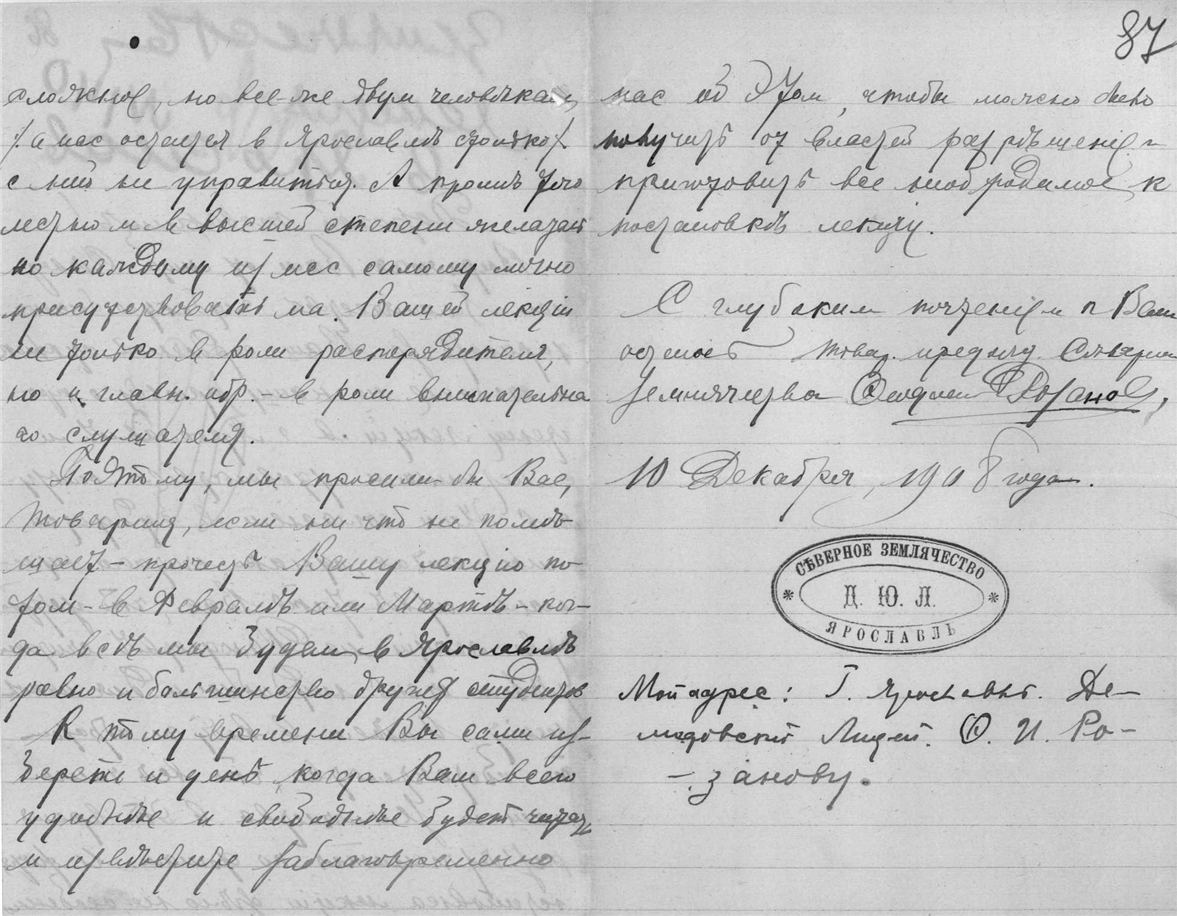 сложное, но все-же двум человѣкам
/а нас остается в Ярославлѣ столько/
с ней не управиться. А кромѣ того
лестно и в высшей степени желатель
но каждому из нас самому лично
присутствовать на Вашей лекціи
не только в роли распорядителя,
но и главн. обр. - в роли внимательна
го слушателя.
Поэтому, мы просили-бы Вас,
товарищ, если ни что не помѣ-
шает - прочесть Вашу лекцію по-
том - в Февралѣ или Мартѣ - ког-
да всѣ мы будем в Ярославлѣ
равно и большинство других студентов
К тому времени Вы сами из-
берете и день, когда Вам всего
удобнѣе и свободнѣе будет читать
и извѣстите заблаговременно
87
нас об этом, чтобы можно было
получить от властей разрѣшеніе и
приготовить все необходимое к
постановкѣ лекціи.
С глубоким почтеніем к Вам
остаюсь товар. предсѣд. Сѣверн.
Землячества Розанов,
10 Декабря, 1908 года.
СѢВЕРНОЕ ЗЕМЛЯЧЕСТВО
Д. Ю. Л.
ЯРОСЛАВЛЬ
Мой адрес: Г. Ярославль. Де-
мидовскій Лицей. Ѳ. И. Ро-
- занову.